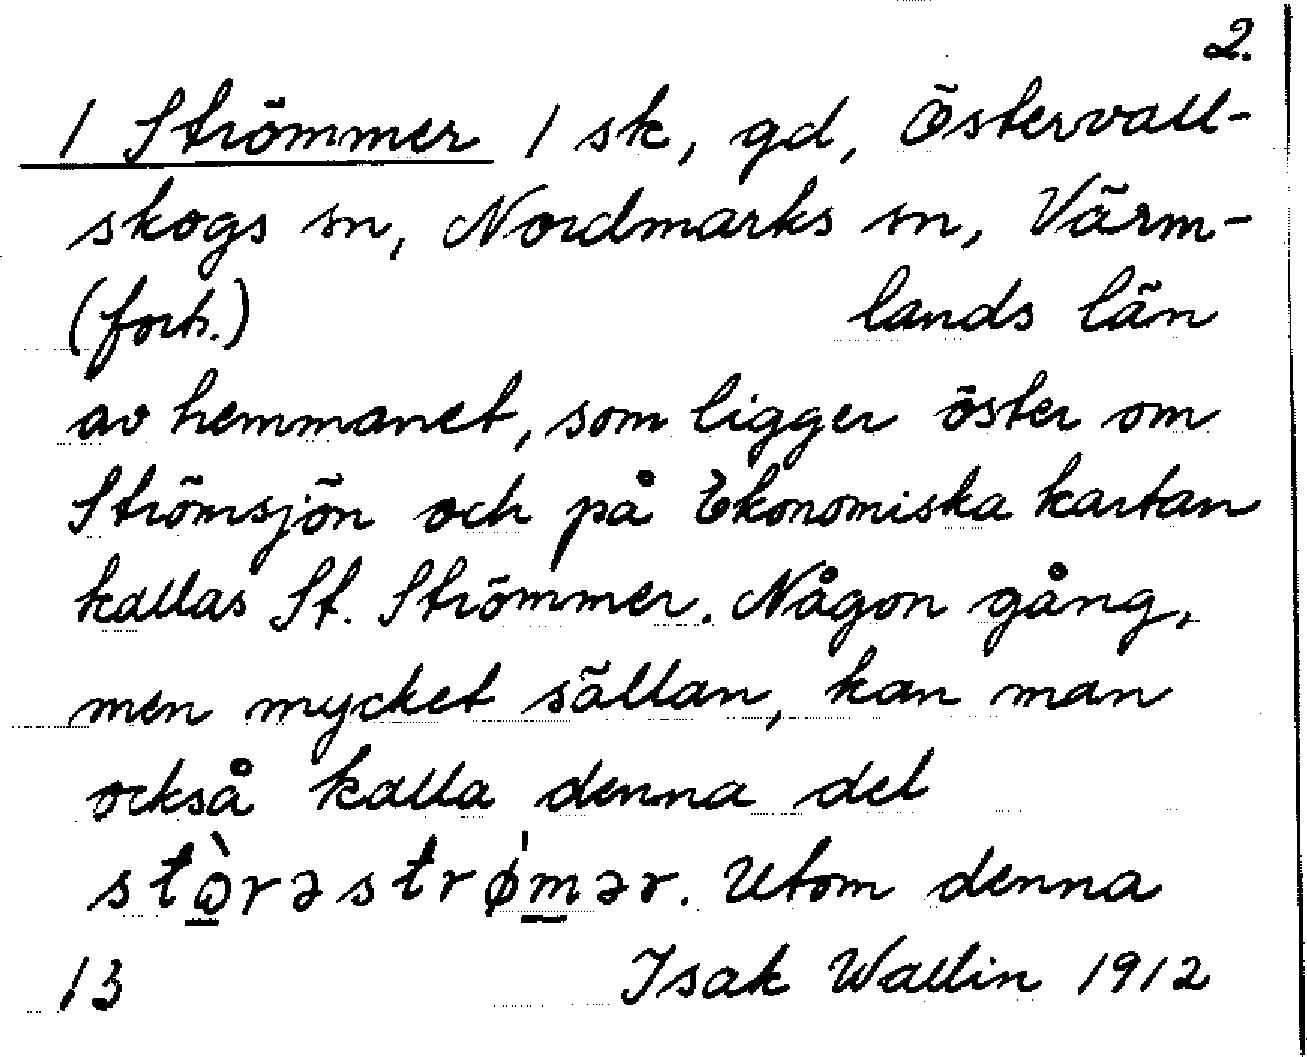 2.
1 Strömmer 1 sk, gd, Östervall-
skogs sn, Nordmarks sn, Värm-
(forts.) lands län
av hemmanet, som ligger öster om
Strömsjön och på Ekonomiska kartan
kallas St. Strömmer. Någon gång,
men mycket sällan, kan man
också kalla denna del
stò̱rəstrǿm̱ər. Utom denna
13 Isak Wallin 1912